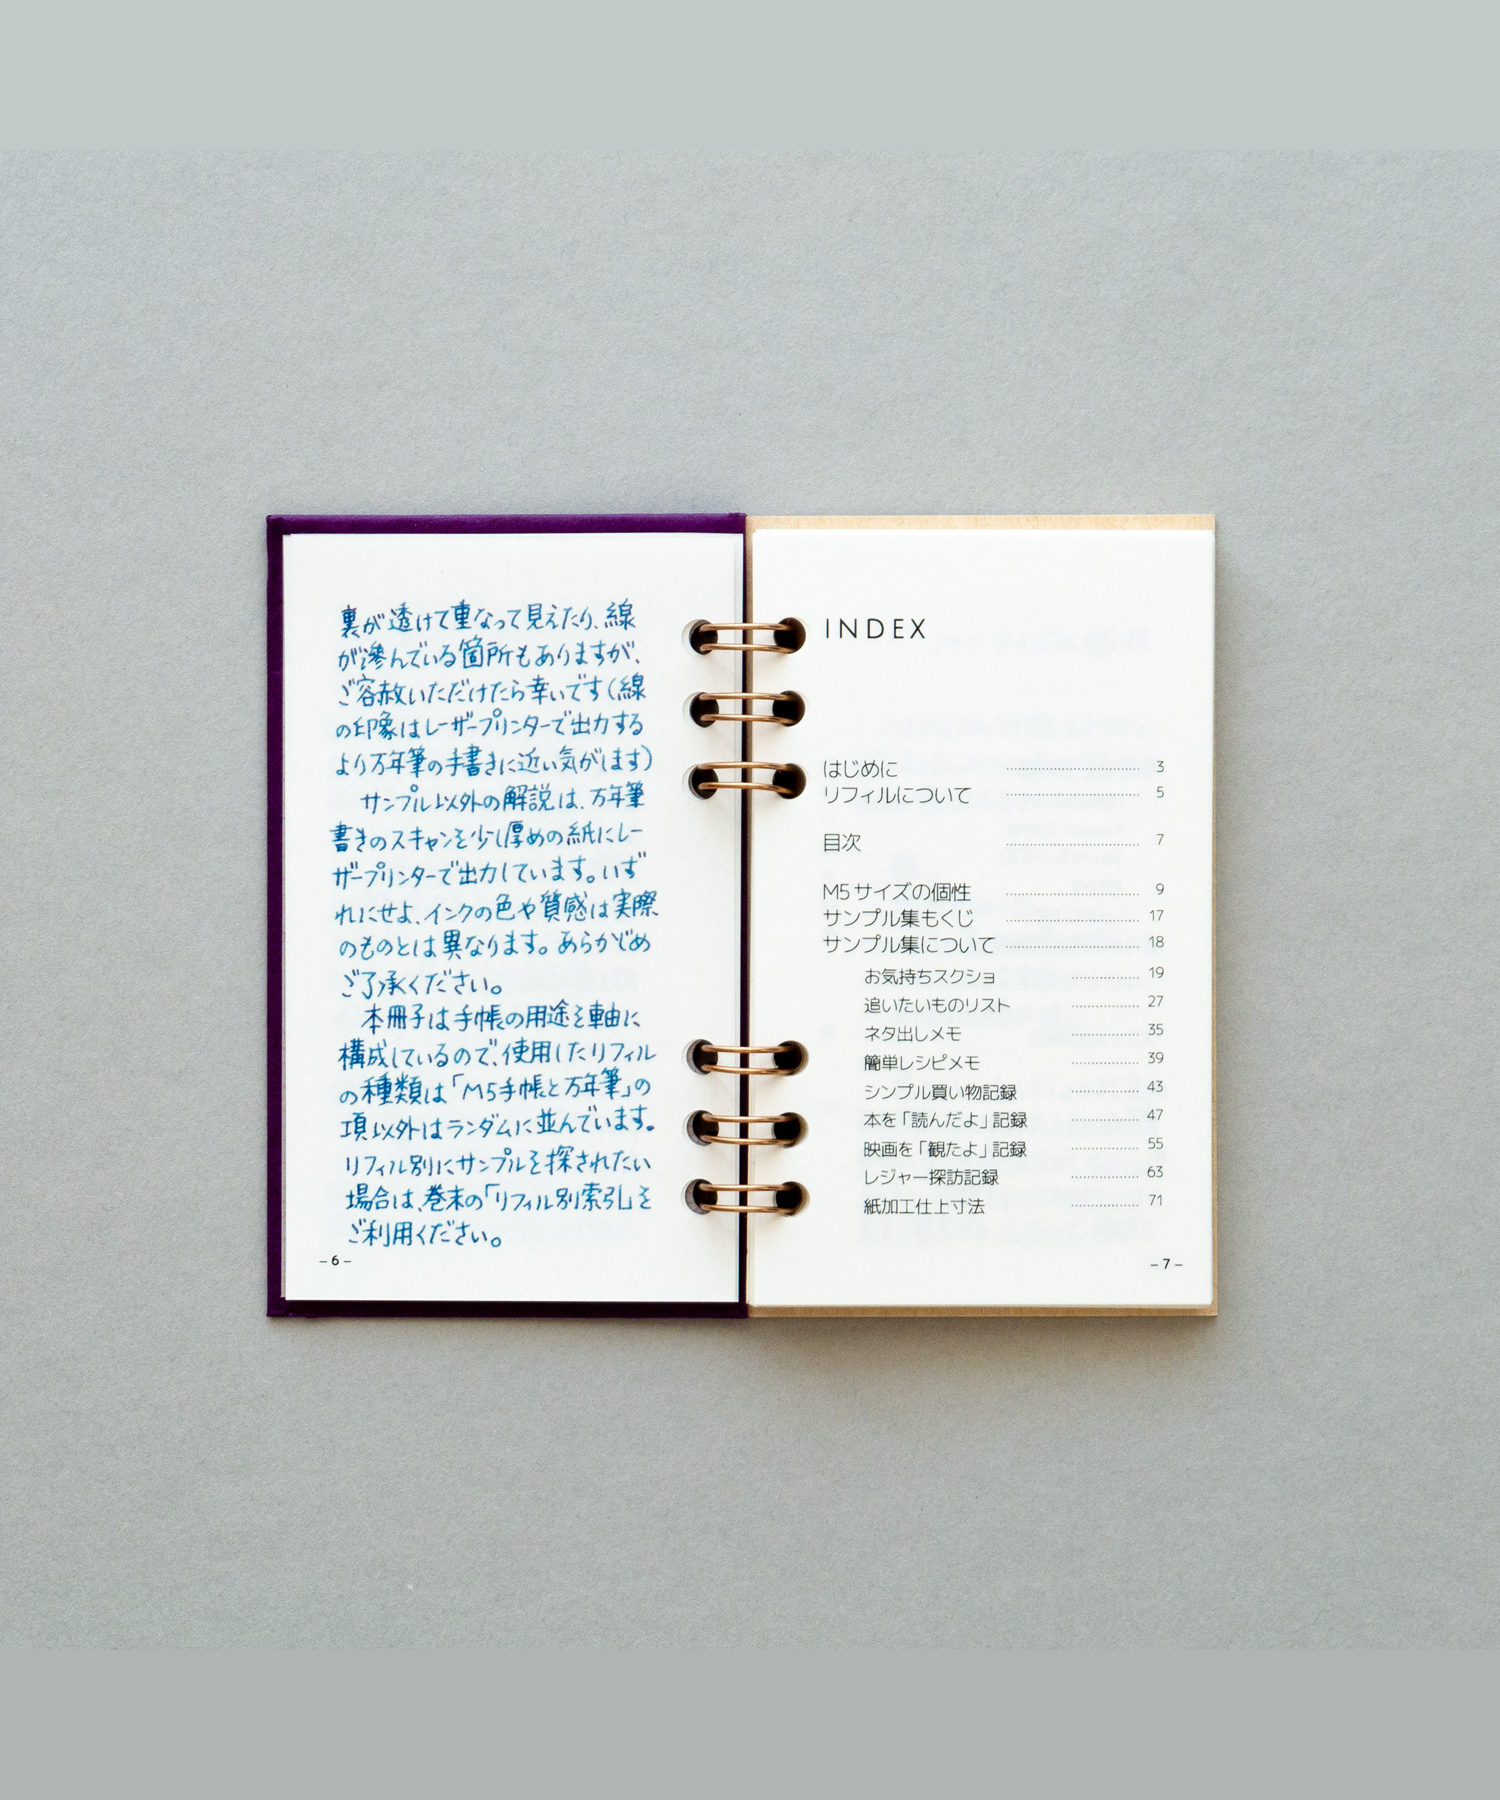 裏が透けて重なって見えたり、線
が滲んでいる箇所もありますが、
ご容赦いただけたら幸いです(線
の印象はレーザープリンターで出力する
より万年筆の手書きに近い気がします)
サンプル以外の解説は、万年筆
書きのスキャンを少し厚めの紙にレー
ザープリンターで出力しています。いず
れにせよ、インクの色や質感は実際
のものとは異なります。あらかじめ
ご了承ください。
本冊子は手帳の用途を軸に
構成しているので、使用したリフィル
の種類は「M5手帳と万年筆」の
項以外はランダムに並んでいます。
リフィル別にサンプルを探されたい
場合は、巻末の「リフィル別索引」を
ご利用ください。
– 6 –
INDEX
はじめに 3
リフィルについて 5
目次 7
M5サイズの個性 9
サンプル集もくじ 17
サンプル集について 18
お気持ちスクショ 19
追いたいものリスト 27
ネタ出しメモ 35
簡単レシピメモ 39
シンプル買い物記録 43
本を「読んだよ」記録 47
映画を「観たよ」記録 55
レジャー探訪記録 63
紙加工仕上寸法 71
– 7 –